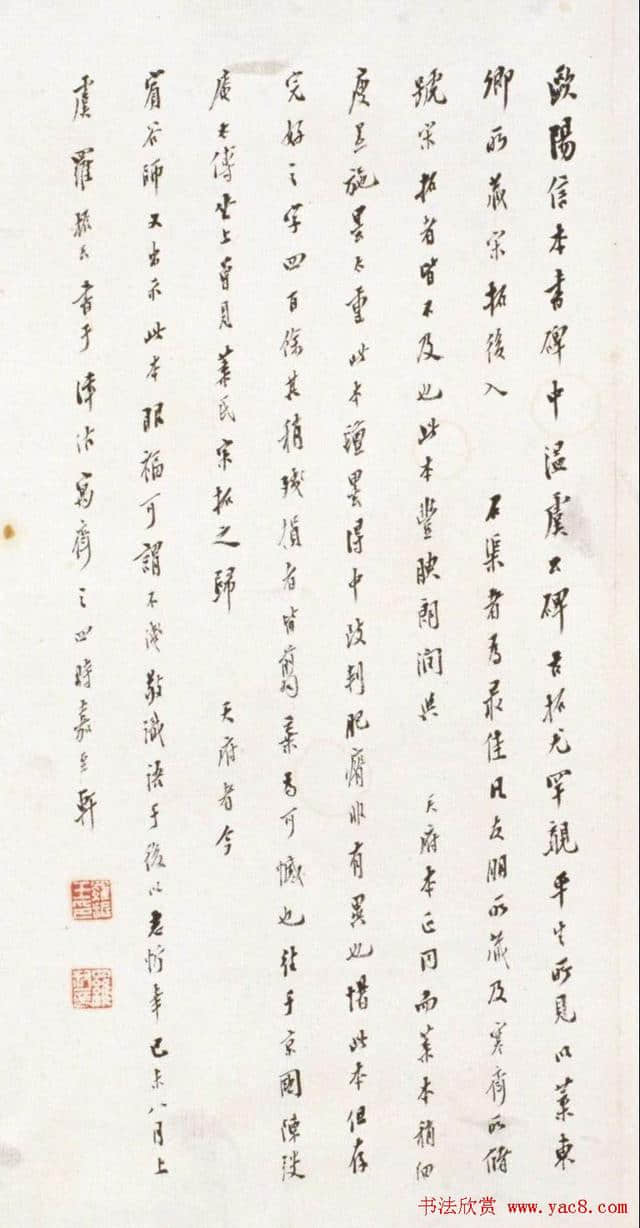 歐陽信本書碑中溫虞公碑古拓尤罕覯平生所見以葉東
卿所藏宋拓後入 石渠者為最佳凡友朋所藏及寒齋所儲
號宋拓者皆不及也此本豐腴朗潤與 天府本正同而葉本稍細
度是施墨太重此本
墨得中故判肥瘠非有異也惜此本但存
完好之字四百餘其稍殘損者皆翦棄為可憾也往于京國陳弢
庵太傅坐上曾見葉氏宋拓之歸 天府者今
寶谷師又出示此本眼福可謂不淺敬識語于後以志忻幸己未八月上
虞羅振玉書于津沽寓齋之四時嘉至軒
书法欣赏 www.yac8.com